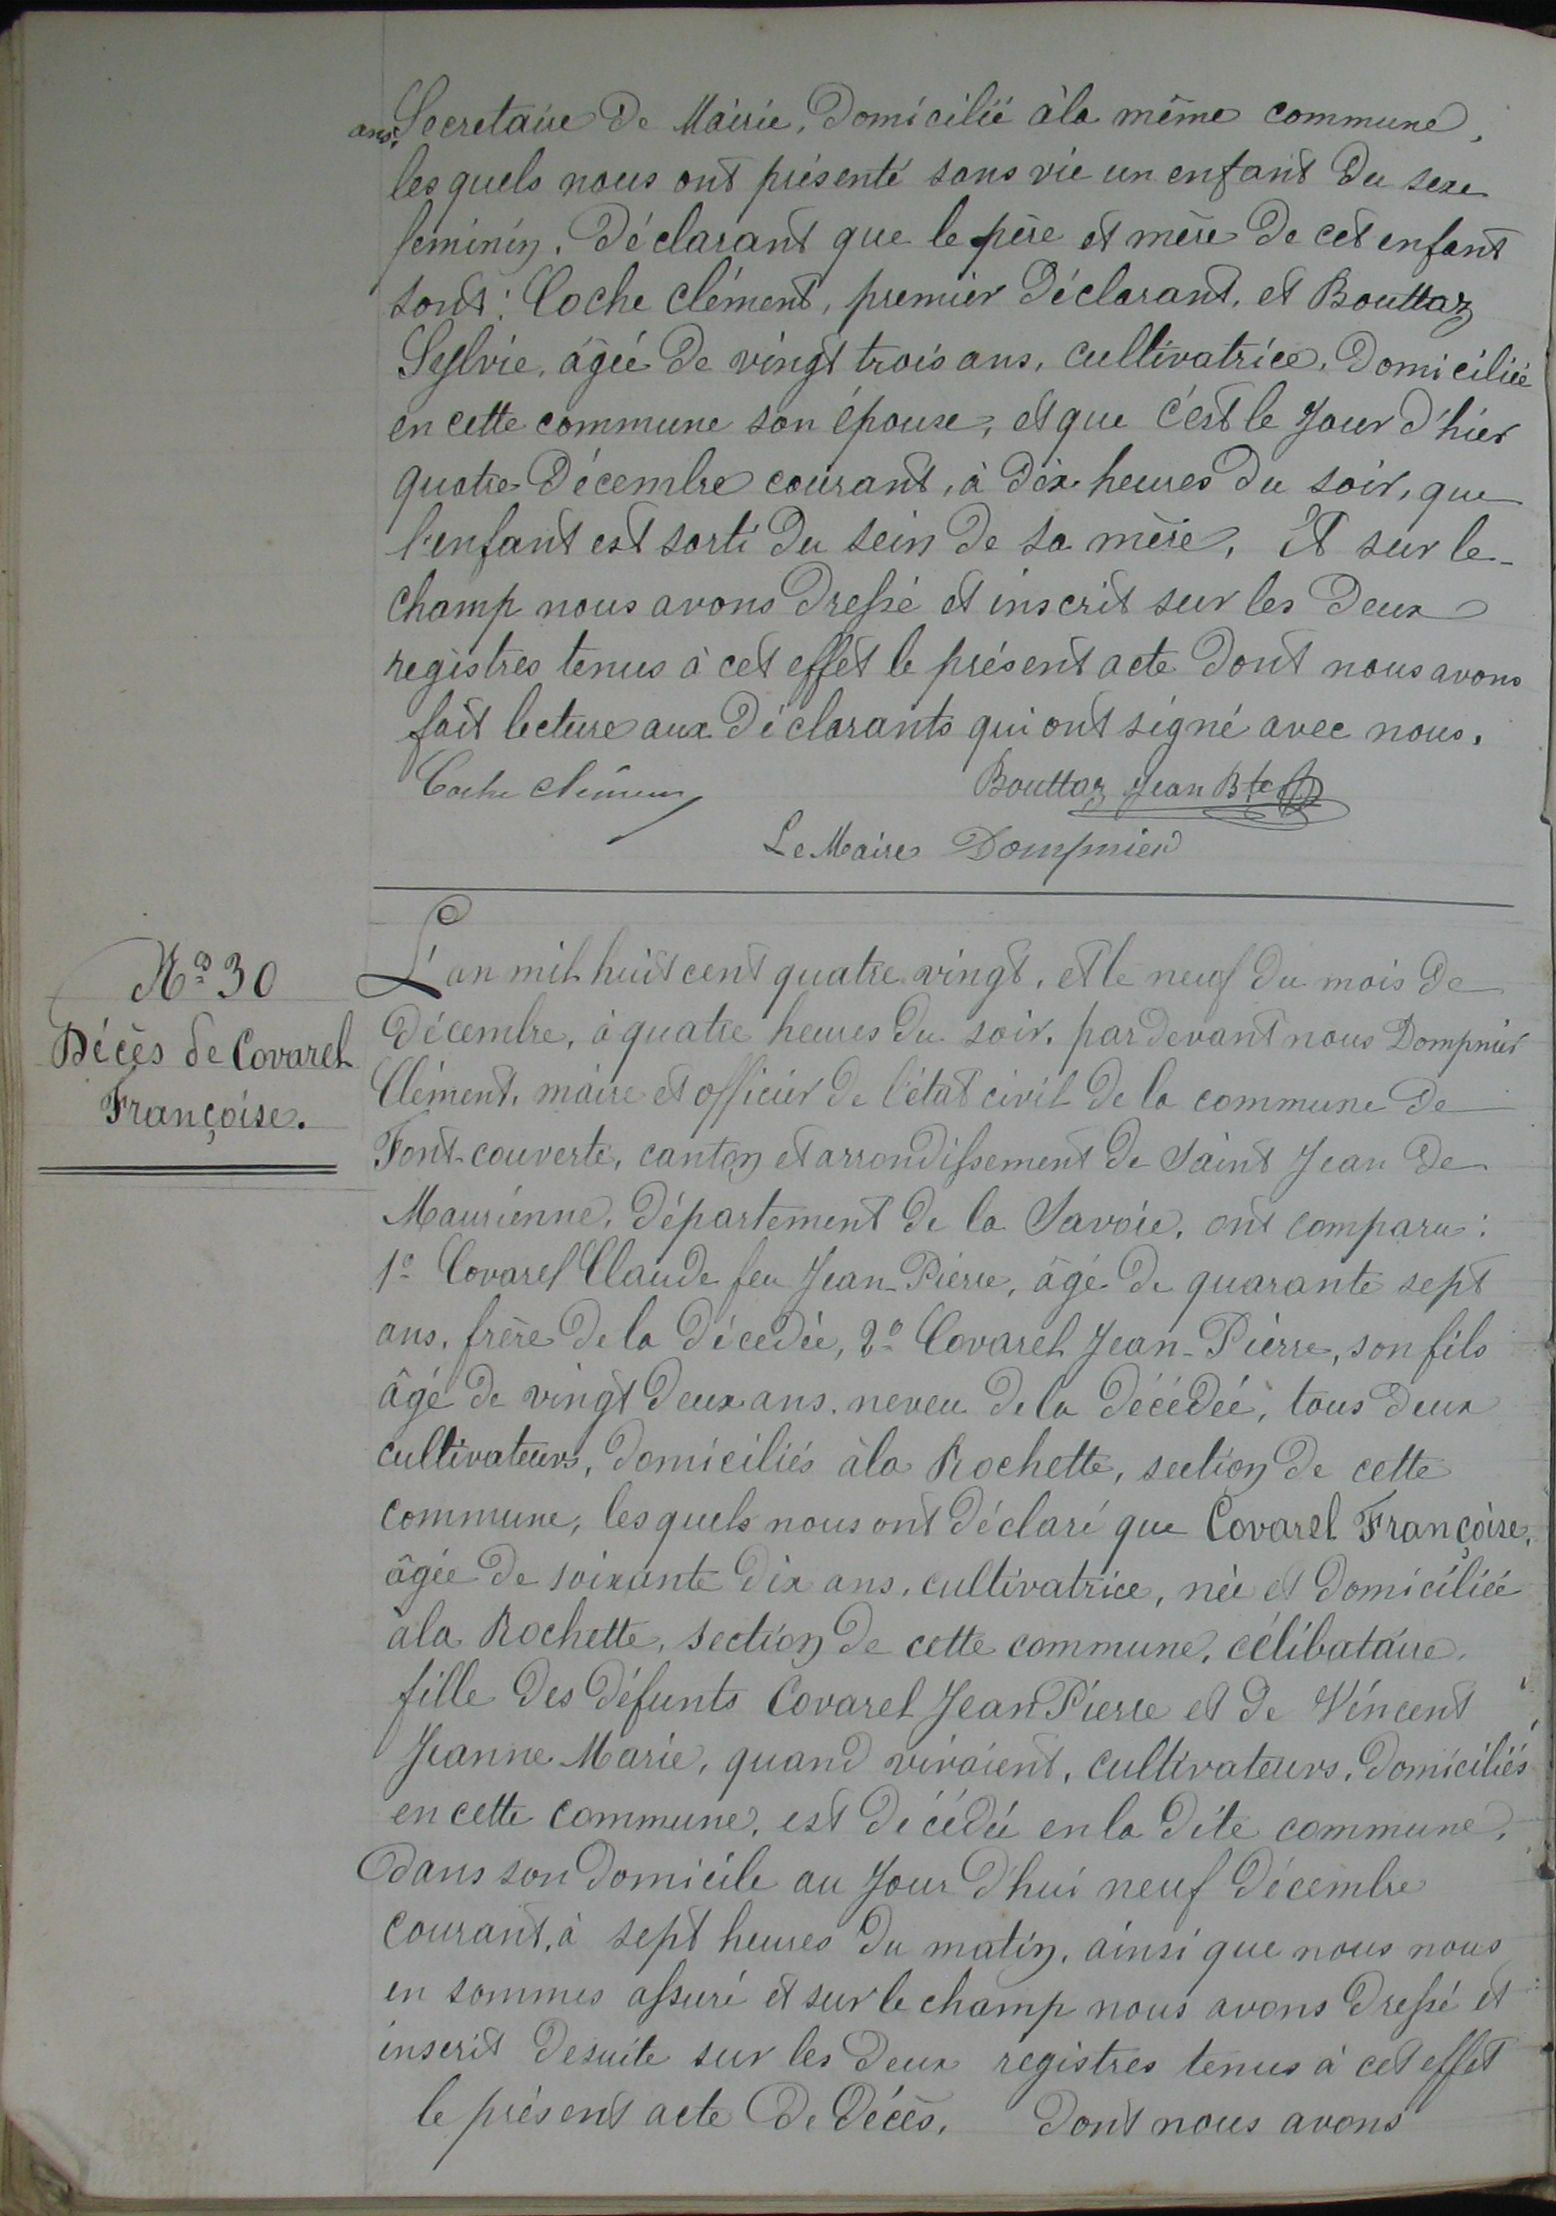 ans, Secretaire de Mairie, domicilié à la même commune,
les quels nous ont présenté sans vie un enfant du sexe
feminin. Déclarant que le père et mère de cet enfant
sont: Coche Clément, premier déclarant, et Bouttaz
Sylvie, âgée de vingt trois ans, cultivatrice, domiciliée
en cette commune son épouse, et que c'est le jour d'hier
quatre Décembre courant, à dix heures du soir, que
l'enfant est sorti du sein de sa mère. Et sur le-
champ nous avons dressé et inscrit sur les deux
registres tenus à cet effet le présent acte dont nous avons
fait lecture aux déclarants qui ont signé avec nous.
Coche Clément
Bouttaz Jean Bte
Le Maire Dompnier
N° 30
Décès de Covarel
Françoise.
L'an mil huit cent quatre vingt, et le neuf du mois de
Décembre, à quatre heures du soir, par devant nous Dompnier
Clément, maire et officier de l'état civil de la commune de
Font-couverte, canton et arrondissement de Saint Jean de
Maurienne, département de la Savoie, ont comparu:
1° Covarel Claude feu Jean-Pierre, âgé de quarante sept
ans, frère de la décedée, 2° Covarel Jean-Pierre, son fils
âgé de vingt deux ans, neveu de la décédée, tous deux
cultivateurs, domiciliés à la Rochette, section de cette
commune, les quels nous ont déclaré que Covarel Françoise,
âgée de soixante dix ans, cultivatrice, née et domiciliée
à la Rochette, section de cette commune, célibataire,
fille des défunts Covarel Jean Pierre et de Vincent
Jeanne Marie, quand vivaient, cultivateurs, domiciliés
en cette commune, est décédée en la dite commune,
dans son domicile au jour d'hui neuf décembre
courant, à sept heures du matin, ainsi que nous nous
en sommes assuré et sur le champ nous avons dressé et
inscrit desuite sur les deux registres tenus à cet effet
le présent acte de décès, dont nous avons